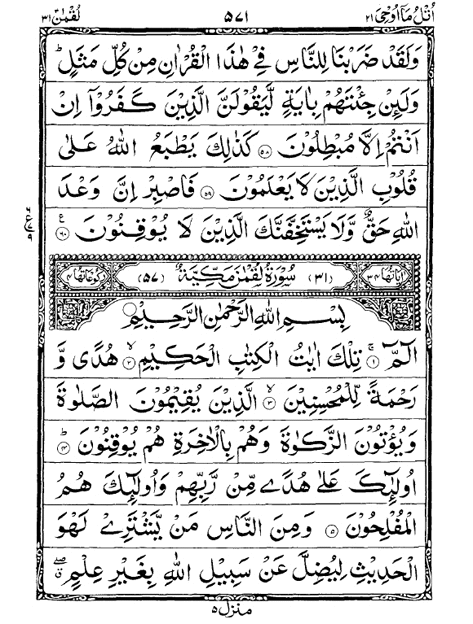 اُتْلُ مَآ اُوْحِیَ ٢١ ٥٧١ لُقْمٰن ٣١
وَلَقَدْ ضَرَبْنَا لِلنَّاسِ فِیْ هٰذَا الْقُرْاٰنِ مِنْ كُلِّ مَثَلٍ ؕ
وَلَىِٕنْ جِئْتَهُمْ بِاٰیَةٍ لَّیَقُوْلَنَّ الَّذِیْنَ كَفَرُوْۤا اِنْ
اَنْتُمْ اِلَّا مُبْطِلُوْنَ ۝٥٨ كَذٰلِكَ یَطْبَعُ اللّٰهُ عَلٰی
قُلُوْبِ الَّذِیْنَ لَا یَعْلَمُوْنَ ۝٥٩ فَاصْبِرْ اِنَّ وَعْدَ
اللّٰهِ حَقٌّ وَّلَا یَسْتَخِفَّنَّكَ الَّذِیْنَ لَا یُوْقِنُوْنَ ۝٦٠
اٰیَاتُهَا ٣٤ (٣١) سُوْرَةُ لُقْمٰنَ مَكِّیَّةٌ (٥٧) رُكُوْعَاتُهَا ٤
بِسْمِ اللّٰهِ الرَّحْمٰنِ الرَّحِیْمِ
الٓمّٓ ۝١ تِلْكَ اٰیٰتُ الْكِتٰبِ الْحَكِیْمِ ۝٢ هُدًی وَّ
رَحْمَةً لِّلْمُحْسِنِیْنَ ۝٣ الَّذِیْنَ یُقِیْمُوْنَ الصَّلٰوةَ
وَیُؤْتُوْنَ الزَّكٰوةَ وَهُمْ بِالْاٰخِرَةِ هُمْ یُوْقِنُوْنَ ۝٤
اُولٰٓىِٕكَ عَلٰی هُدًی مِّنْ رَّبِّهِمْ وَاُولٰٓىِٕكَ هُمُ
الْمُفْلِحُوْنَ ۝٥ وَمِنَ النَّاسِ مَنْ یَّشْتَرِیْ لَهْوَ
الْحَدِیْثِ لِیُضِلَّ عَنْ سَبِیْلِ اللّٰهِ بِغَیْرِ عِلْمٍ
منزل ٥